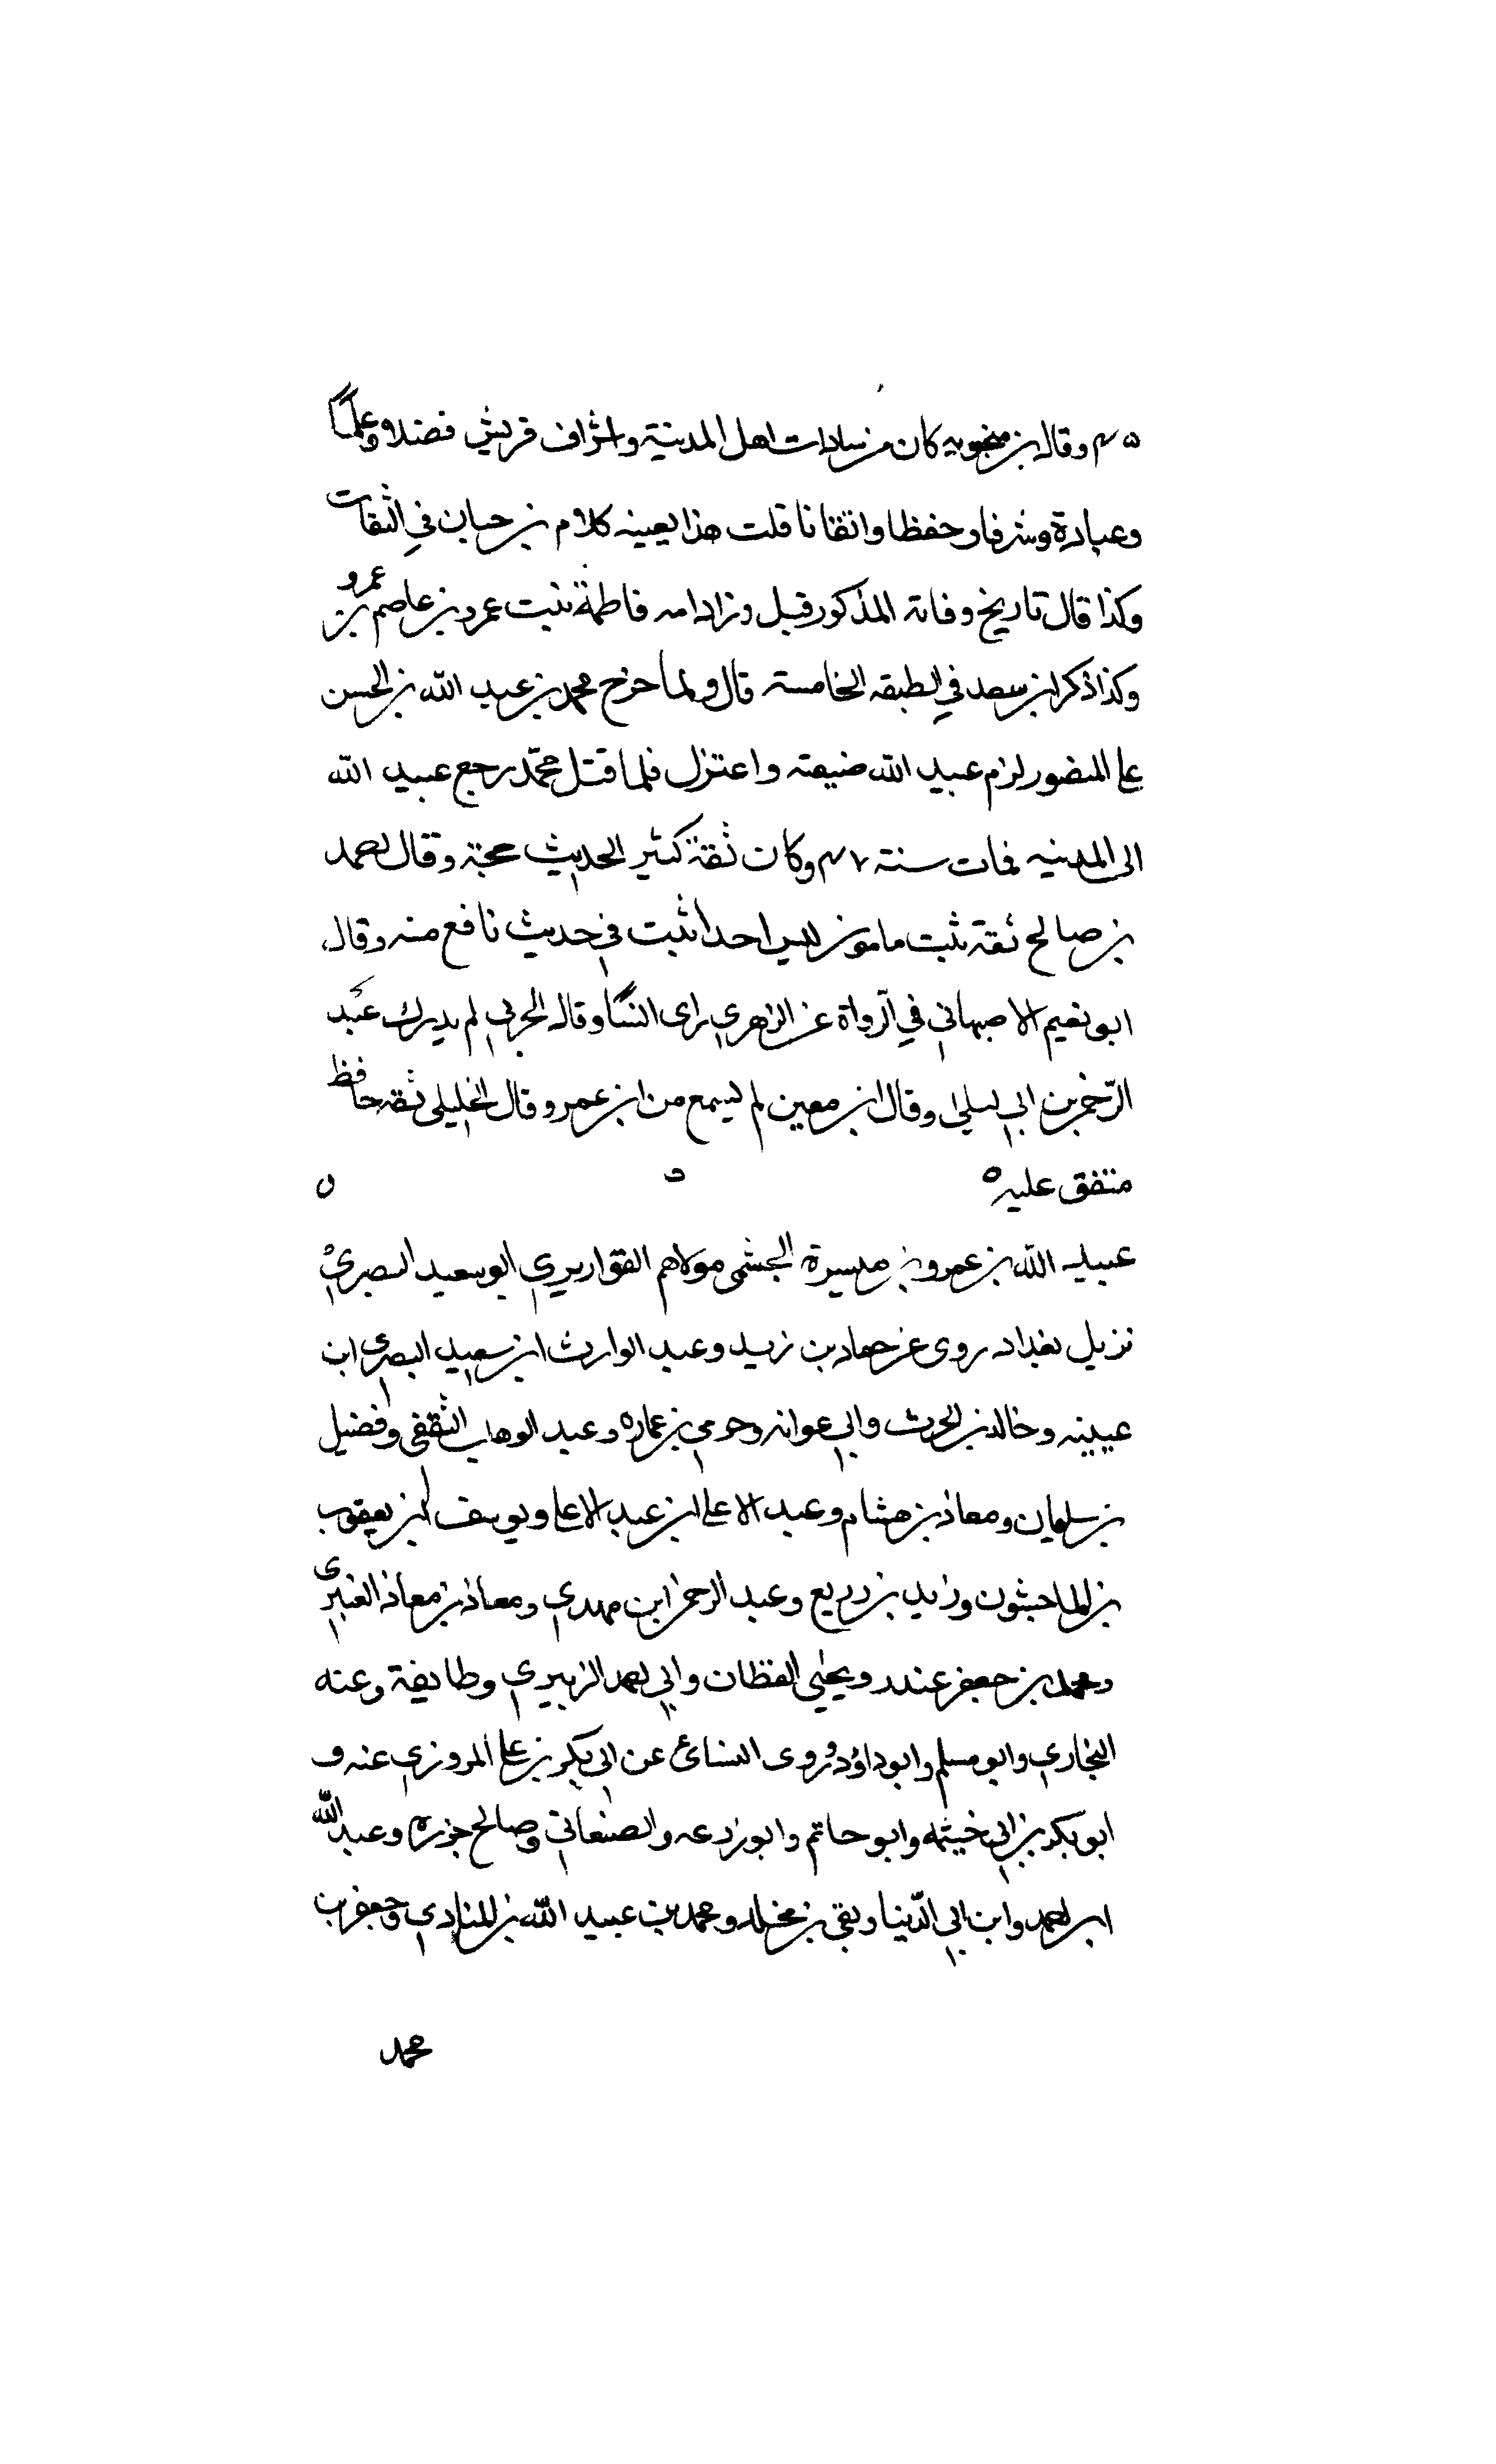 ٤٥ وقال بن منجويه كان من سادات اهل المدينة واشراف قريش فضلا وعلما
وعبادة وشرفا وحفظا واتقانا قلت هذا بعينه كلام بن حبان في الثقات
وكذا قال تاريخ وفاته المذكور قبل وزاد امه فاطمة بنت عمر بن عاصم بن عمرو
وكذا ذكر ابن سعد في الطبقه الخامسة قال ولما خرج محمد بن عبد الله بن الحسن
على المنصور لزم عبيد الله ضيعته واعتزل فلما قتل محمّد رجع عبيد الله
الى المدينه فمات سنة ٤٧ وكان ثقة كثير الحديث حجة وقال احمد
بن صالح ثقة ثبت مامون ليس احد اثبت في حديث نافع منه وقال
ابو نعيم الاصبهاني في الرواة عن الزهري راى انسا وقال الحربي لم يدرك عبد
الرحمن بن ابي ليلى وقال ابن معين لم يسمع من ابن عمر وقال الخليلي ثقه حافظ
متفق عليه ه
عبيد الله بن عمرو بن ميسرة الجشمى مولاهم القواريري ابو سعيد البصري
نزيل بغداد روى عن حماد بن زيد وعبد الوارث ابن سعيد البصري ابن
عيينه وخالد بن الحرث وابي عوانه وحرمي بن عماره وعبد الوهاب الثقفى وفضيل
بن سليمان ومعاذ بن هشام وعبد الاعلى ابن عبد الاعلى ويوسف ابن يعقوب
بن الماجشون ويزيد بن زريع وعبد الرحمن ابن مهدي ومعاذ بن معاذ العنبرى
ومحمد بن جعفر غندر ويحيى القطان وابي احمد الزبيري وطايفة وعنه
البخاري وابو مسلم وابو داؤد وروى النسائ عن ابي بكر بن على المروزي عنه و
ابو بكر بن ابي خيثمه وابو حاتم وابو زرعه والصنعاني وصالح جزره وعبد الله
ابن احمد وابن ابي الدّنيا وبقي بن مخلد ومحمد بن عبيد الله بن المنادي وجعفر بن
محمد